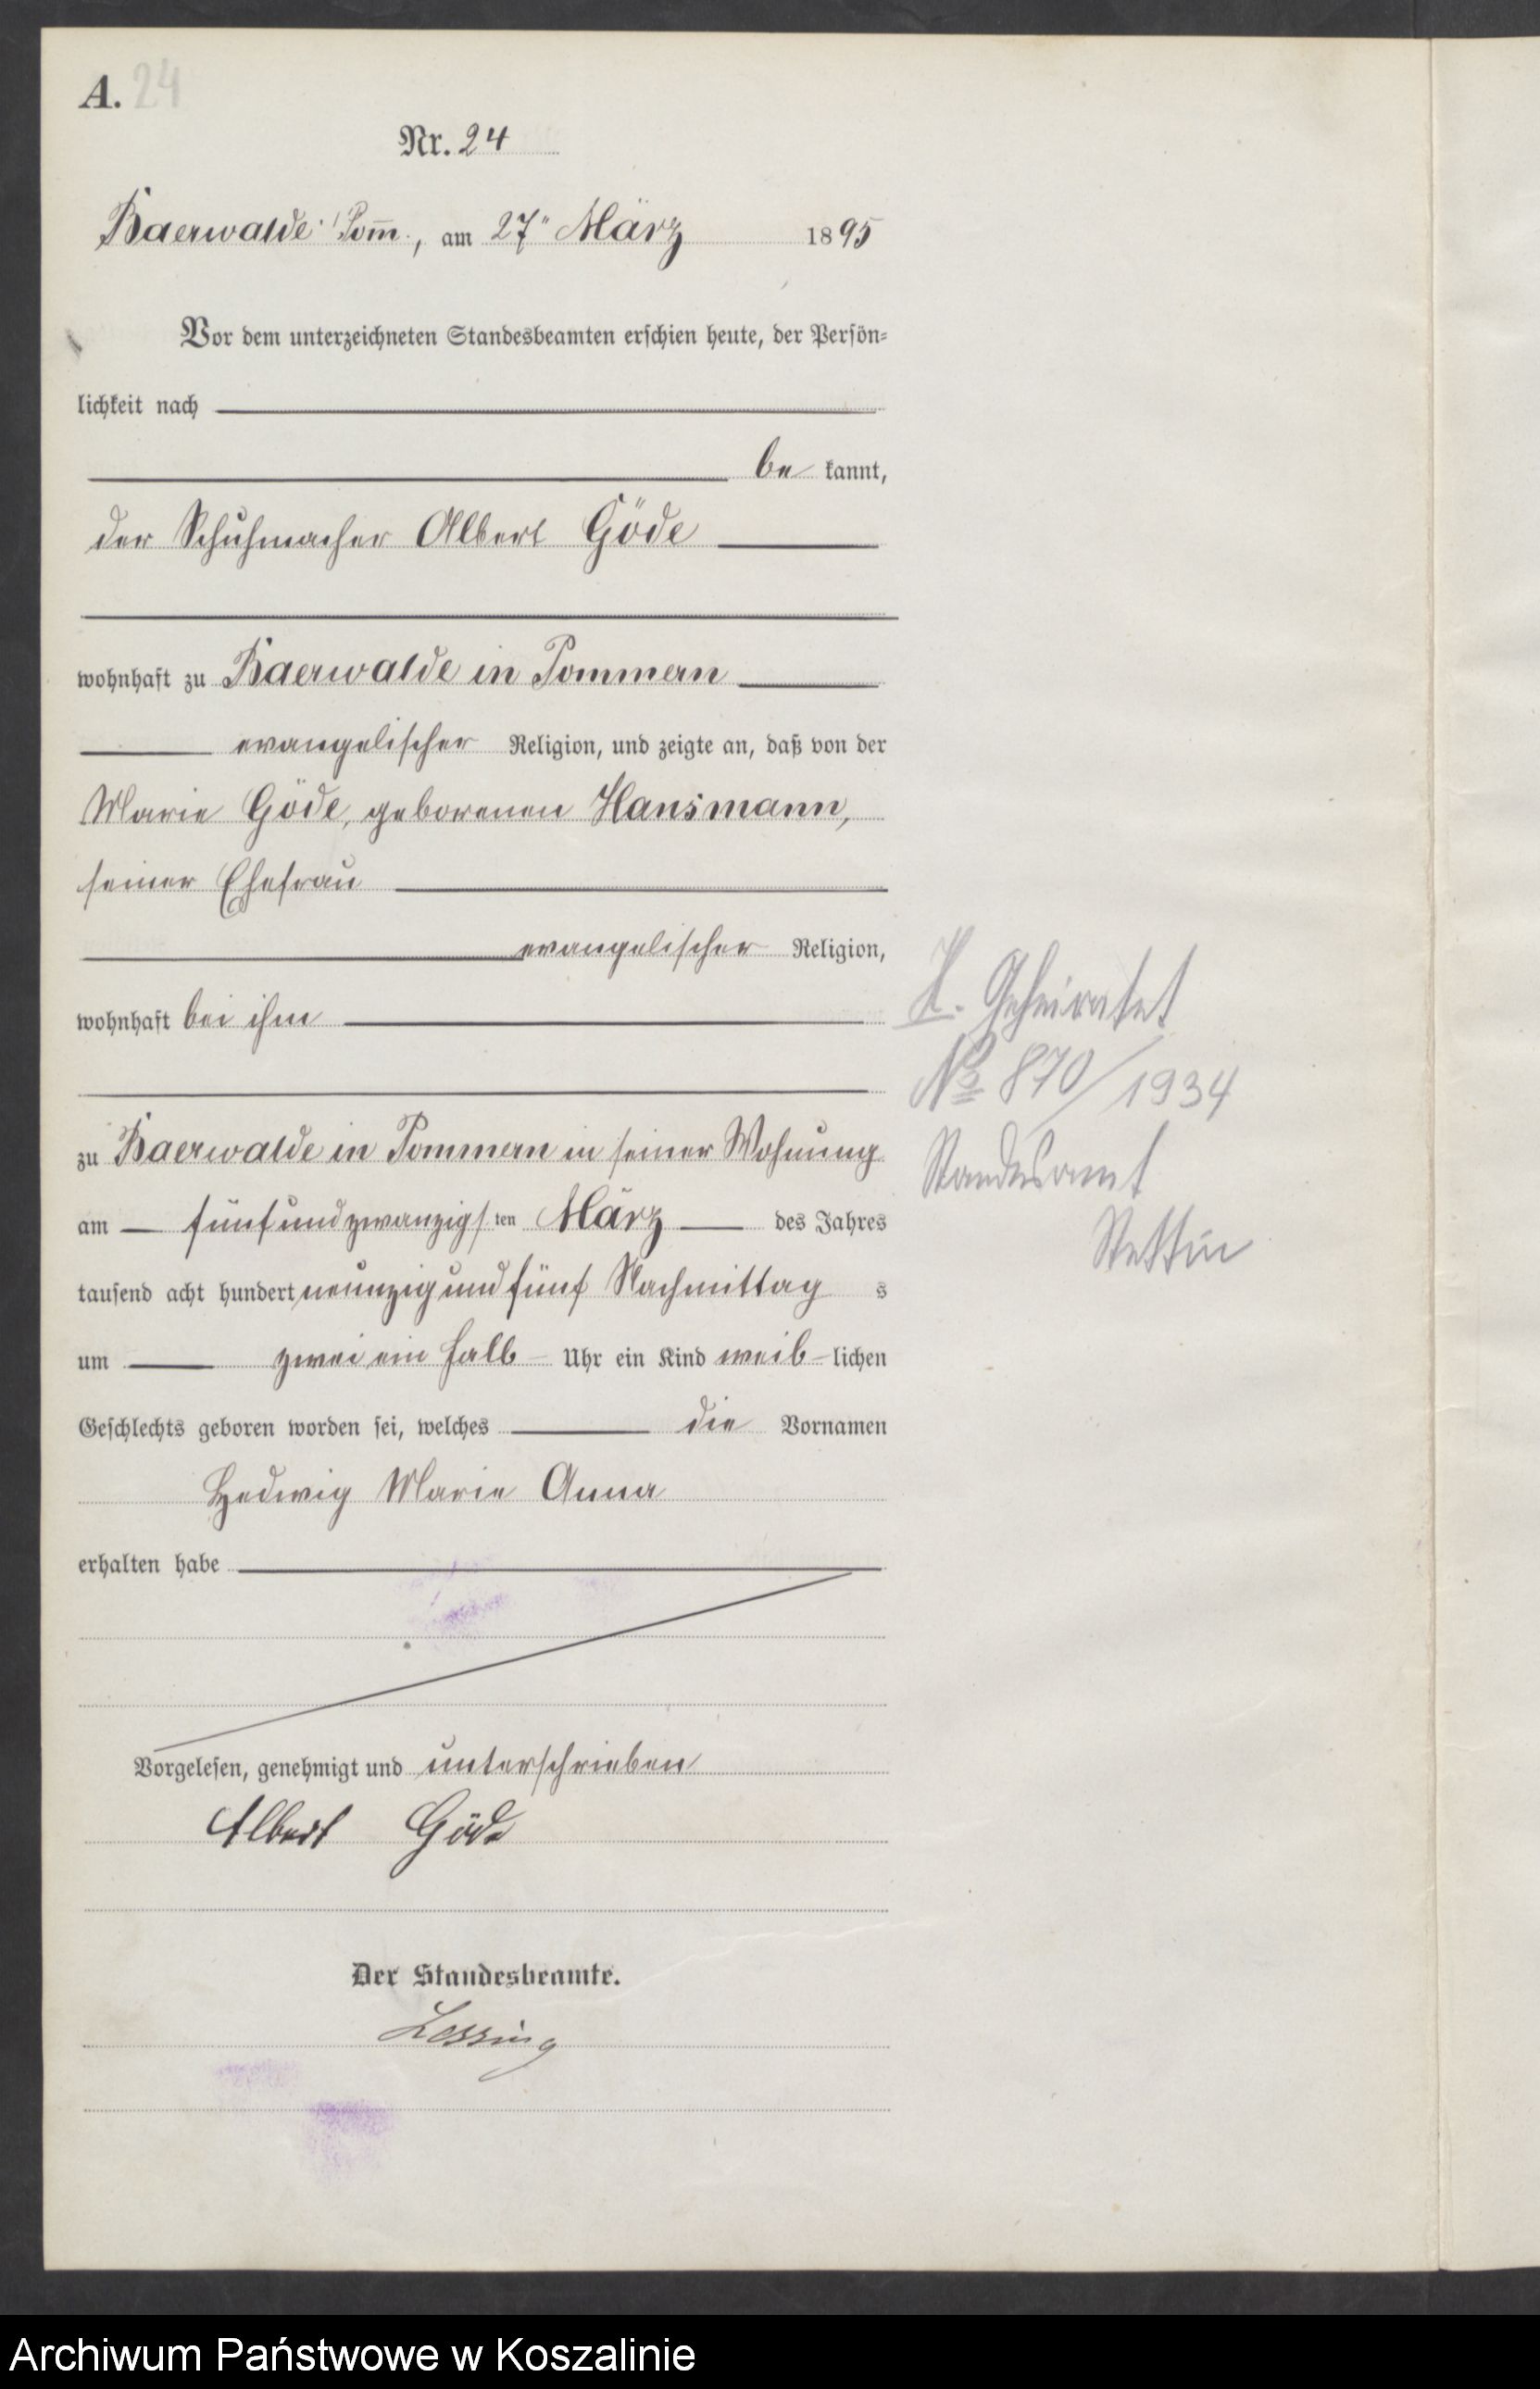 A. 24
Nr. 24
Baerwalde Pom̄., am 27" März 1895
Vor dem unterzeichneten Standesbeamten erschien heute, der Persön-
lichkeit nach
be kannt,
der Schuhmacher Albert Göde
wohnhaft zu Baerwalde in Pommern
evangelischer Religion, und zeigte an, daß von der
Marie Göde, geborenen Hansmann,
seiner Ehefrau
evangelischer Religion,
wohnhaft bei ihm
zu Baerwalde in Pommern in seiner Wohnung
am fünfundzwanzigsten März des Jahres
tausend acht hundert neunzig und fünf Nachmittag s
um zwei ein halb Uhr ein Kind weib-lichen
Geschlechts geboren worden sei, welches die Vornamen
Hedwig Marie Anna
erhalten habe
Vorgelesen, genehmigt und unterschrieben
Albert Göde
Der Standesbeamte.
Lessing
Geheiratet
No 870/1934
Standesamt
Stettin
Archiwum Państwowe w Koszalinie